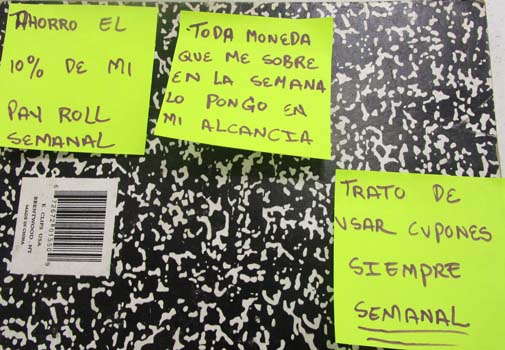 AHORRO EL
10% DE MI
PAY ROLL
SEMANAL
TODA MONEDA
QUE ME SOBRE
EN LA SEMANA
LO PONGO EN
MI ALCANCIA
TRATO DE
USAR CUPONES
SIEMPRE
SEMANAL
E. CLIPS USA
BRENTWOOD, NY
MADE IN CHINA